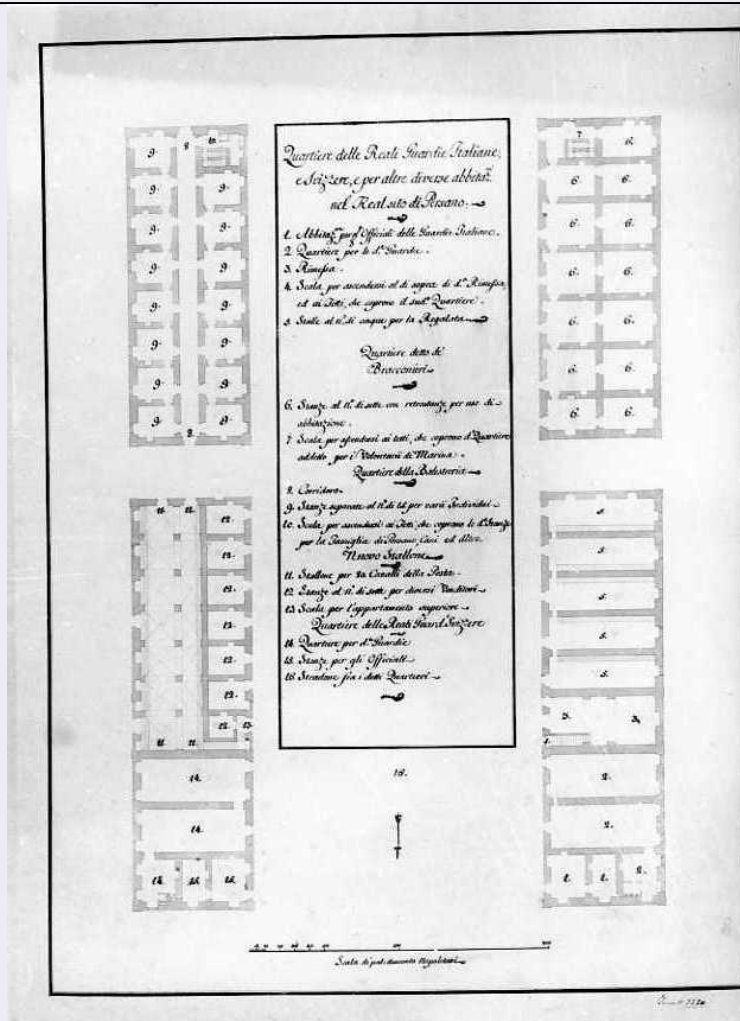 Quartiere delle Reali Guardie Italiane,
e Svizzere, e per altre diverse abbitaz.
nel Real sito di Persano.
1. Abbitaz. per gl'Officiali delle Guardie Italiane.
2. Quartiere per le d.e Guardie.
3. Rimessa.
4. Scala per ascendersi al di sopra di d.a Rimessa,
ed ai Tetti, che coprono il sud.o Quartiere.
5. Stalle al n.o di cinque per la Regalata
Quartiere detto de'
Bracconieri
6. Stanze al n.o di sette con retrostanze per uso di
abbitazione.
7. Scala per ascendersi ai tetti, che coprono d.o Quartiere
addetto per i Volontarii di Marina.
Quartiere della Balestreria
8. Corridoro.
9. Stanze separate al n.o di 14 per varii Individui
10. Scala per ascendersi ai Tetti, che coprono le d.e Stanze
per la Famiglia di Persano, Cani ed Altro.
Nuovo Stallone
11. Stallone per Cavalli della Posta.
12. Stanze al n.o di sette per diversi Venditori
13. Scala per l'appartamento superiore
Quartiere delle Reali Guard. Svizzere
14. Quartiere per d.e Guardie
15. Stanze per gli Officiali
16. Stradone fra i detti Quartieri
9. 8. 10.
9. 9.
9. 9.
9. 9.
9. 9.
9. 9.
9. 9.
9. 8. 9.
7. 6.
6. 6.
6. 6.
6. 6.
6. 6.
6. 6.
6. 6.
6. 6.
11. 11. 12.
12.
12.
12.
12.
12.
12. 13.
11. 11.
14.
14.
15. 15. 15.
5.
5.
5.
5.
5.
3. 3.
2.
2.
1. 1.
16.
Scala di pal. Napolitani